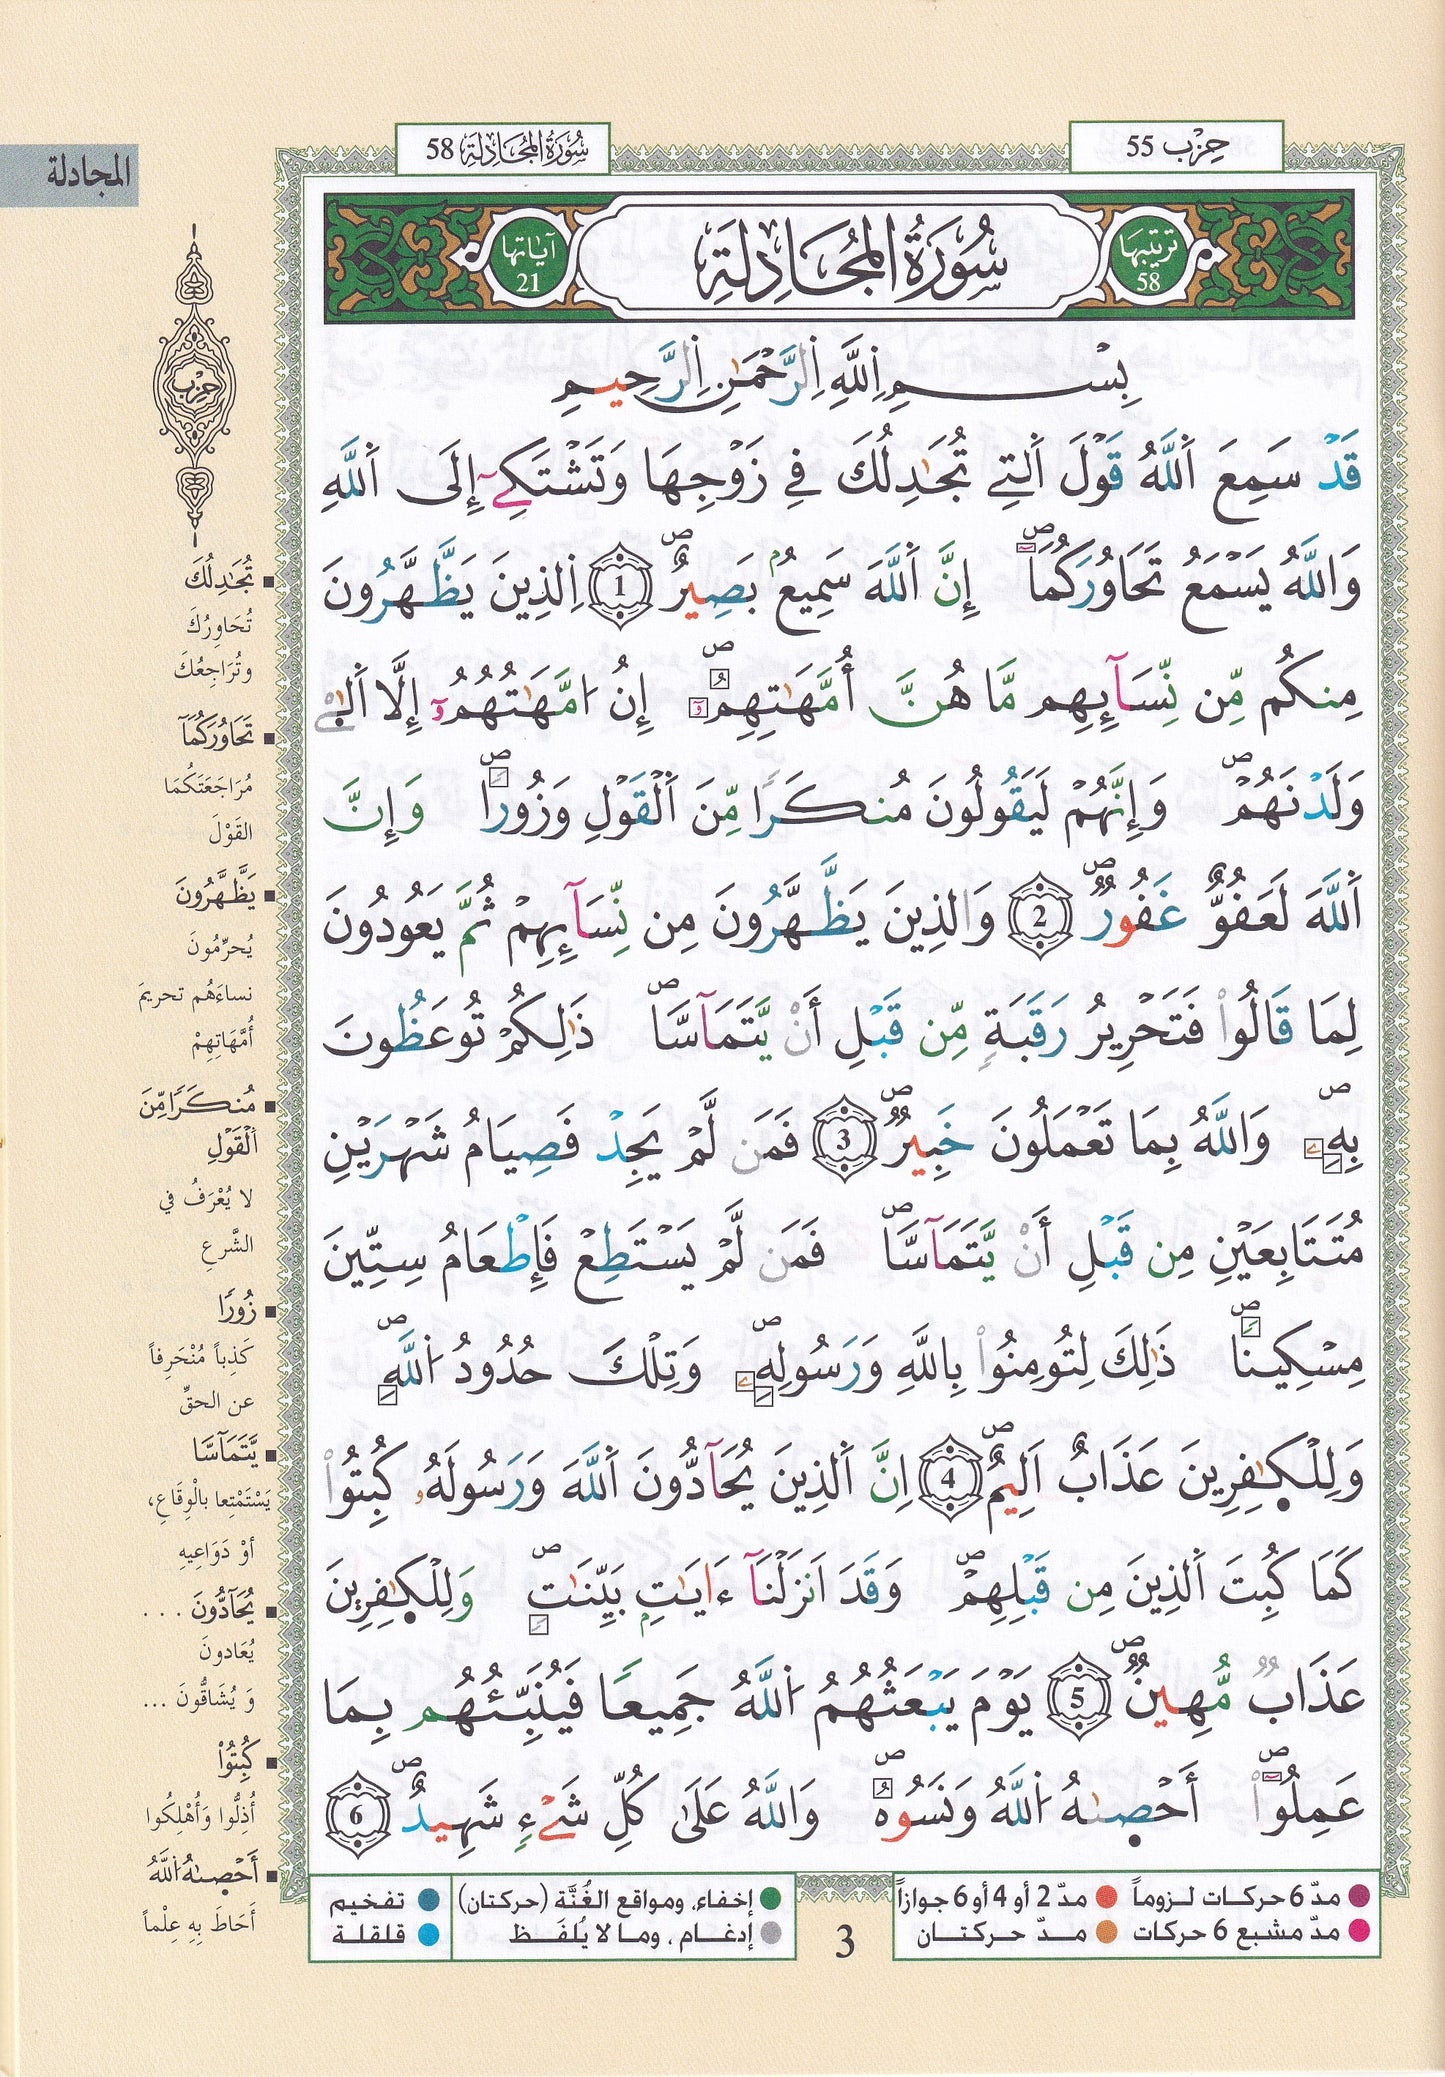 حِزْب 55
سُورَةُ المُجَادِلَةِ 58
المجادلة
تَرتيبُهَا 58
سُورَةُ المُجَادِلَةِ
آيَاتُهَا 21
بِسْمِ اِ۬للَّهِ اِ۬لرَّحْمَٰنِ اِ۬لرَّحِيمِ
قَدْ سَمِعَ اَ۬للَّهُ قَوْلَ اَ۬لتِے تُجَٰدِلُكَ فِے زَوْجِهَا وَتَشْتَكِےٓ إِلَى اَ۬للَّهِ
وَاللَّهُ يَسْمَعُ تَحَاوُرَكُمَآ ص إِنَّ اَ۬للَّهَ سَمِيعُۢ بَصِيرٌ ص 1 اِ۬لذِينَ يَظَّهَّرُونَ
مِنكُم مِّن نِّسَآئِهِم مَّا هُنَّ أُمَّهَٰتِهِمُۥٓ ص إِنُ ا۟مَّهَٰتُهُمُۥٓ إِلَّا اَ۬لَّٰٓے
وَلَدْنَهُمْ ص وَإِنَّهُمْ لَيَقُولُونَ مُنكَرًا مِّنَ اَ۬لْقَوْلِ وَزُورًا ص وَإِنَّ
اَ۬للَّهَ لَعَفُوٌّ غَفُورٌ ص 2 وَالذِينَ يَظَّهَّرُونَ مِن نِّسَآئِهِمْ ثُمَّ يَعُودُونَ
لِمَا قَالُواْ فَتَحْرِيرُ رَقَبَةٍ مِّن قَبْلِ أَنْ يَّتَمَآسَّا ص ذَٰلِكُمْ تُوعَظُونَ
بِهِۦ ص وَاللَّهُ بِمَا تَعْمَلُونَ خَبِيرٌ ص 3 فَمَن لَّمْ يَجِدْ فَصِيَامُ شَهْرَيْنِ
مُتَتَابِعَيْنِ مِن قَبْلِ أَنْ يَّتَمَآسَّا ص فَمَن لَّمْ يَسْتَطِعْ فَإِطْعَامُ سِتِّينَ
مِسْكِينًا ص ذَٰلِكَ لِتُومِنُواْ بِاللَّهِ وَرَسُولِهِۦ ص وَتِلْكَ حُدُودُ اُ۬للَّهِ ص
وَلِلْكٰ۪فِرِينَ عَذَابٌ اَلِيمٌ ص 4 اِنَّ اَ۬لذِينَ يُحَآدُّونَ اَ۬للَّهَ وَرَسُولَهُۥ كُبِتُواْ
كَمَا كُبِتَ اَ۬لذِينَ مِن قَبْلِهِمْ ص وَقَدَ اَنزَلْنَآ ءَايَٰتِۢ بَيِّنَٰتٍ ص وَلِلْكٰ۪فِرِينَ
عَذَابٌ مُّهِينٌ ص 5 يَوْمَ يَبْعَثُهُمُ اُ۬للَّهُ جَمِيعًا فَيُنَبِّئُهُم بِمَا
عَمِلُوٓاْ ص أَحْص۪ىٰهُ اُ۬للَّهُ وَنَسُوهُ ص وَاللَّهُ عَلَىٰ كُلِّ شَےْءٍ شَهِيدٌ ص 6
حِزْب
تُجَٰدِلُكَ
تُحَاوِرُكَ
وتُرَاجِعُكَ
تَحَاوُرَكُمَآ
مُرَاجَعَتَكُمَا
القَوْلَ
يَظَّهَّرُونَ
يُحرِّمُونَ
نساءَهُم تحريمَ
أُمَّهَاتِهِمْ
مُنكَرًا مِّنَ
اَ۬لْقَوْلِ
لا يُعْرَفُ في
الشَّرعِ
زُورًا
كَذِباً مُنْحَرِفاً
عن الحقِّ
يَّتَمَآسَّا
يَسْتَمْتِعا بالْوِقَاعِ،
أوْ دَوَاعِيهِ
يُحَآدُّونَ ...
يُعَادونَ
وَ يُشَاقُّونَ ...
كُبِتُواْ
أُذِلُّوا وَأُهْلِكُوا
أَحْص۪ىٰهُ اُ۬للَّهُ
أَحَاطَ بِهِ عِلْماً
مدّ 6 حركات لـزوماً مدّ 2 أو 4 أو 6 جوازاً
مدّ مشبع 6 حركات مـدّ حـركتـان
إخفاء، ومواقع الغُنَّة (حركتان)
إدغـام ، وما لا يُلفَـظ
تفخيم
قلقلـة
3